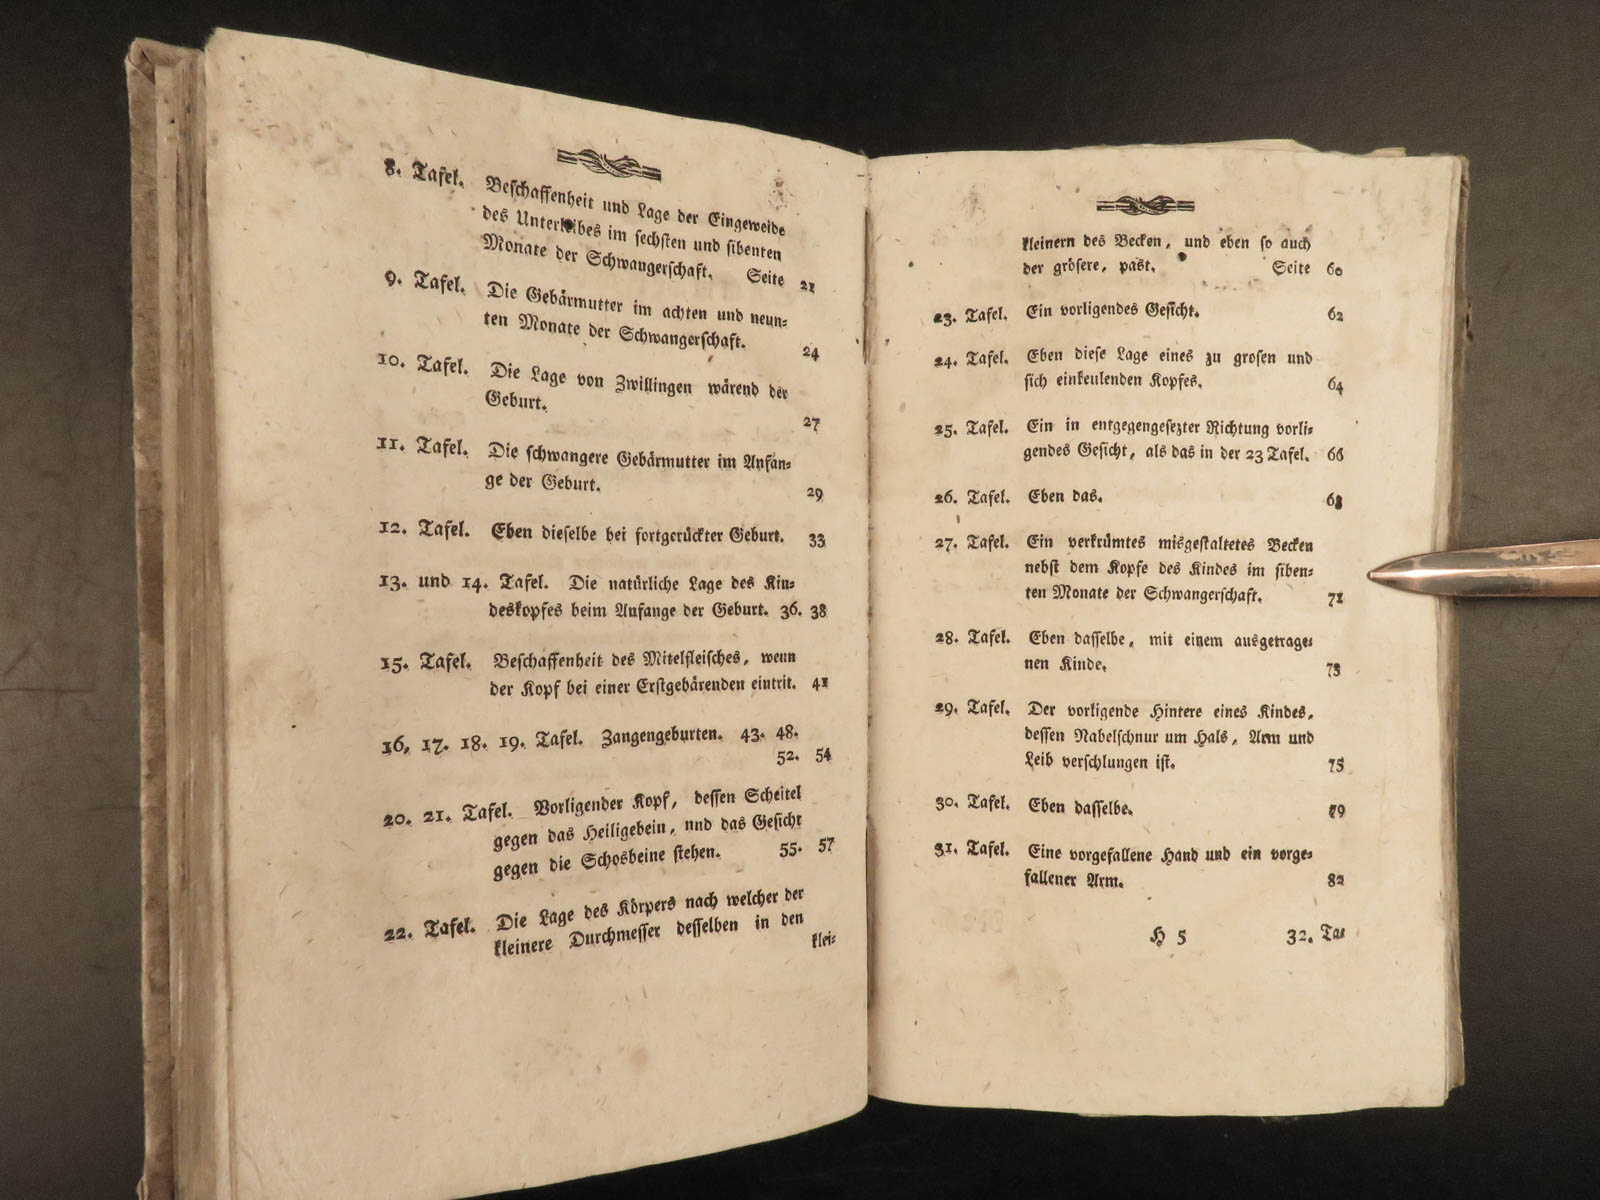 8. Tafel. Beschaffenheit und Lage der Eingeweide
des Unterleibes im sechsten und sibenten
Monate der Schwangerschaft. Seite 21
9. Tafel. Die Gebärmutter im achten und neun-
ten Monate der Schwangerschaft. 24
10. Tafel. Die Lage von Zwillingen wärend der
Geburt. 27
11. Tafel. Die schwangere Gebärmutter im Anfan-
ge der Geburt. 29
12. Tafel. Eben dieselbe bei fortgerückter Geburt. 33
13. und 14. Tafel. Die natürliche Lage des Kin-
deskopfes beim Anfange der Geburt. 36. 38
15. Tafel. Beschaffenheit des Mitelfleisches, wenn
der Kopf bei einer Erstgebärenden eintrit. 41
16, 17. 18. 19. Tafel. Zangengeburten. 43. 48.
52. 54
20. 21. Tafel. Vorligender Kopf, dessen Scheitel
gegen das Heiligebein, nnd das Gesicht
gegen die Schosbeine stehen. 55. 57
22. Tafel. Die Lage des Körpers nach welcher der
kleinere Durchmesser desselben in den
klei-
kleinern des Becken, und eben so auch
der grösere, past. Seite 60
23. Tafel. Ein vorligendes Gesicht. 62
24. Tafel. Eben diese Lage eines zu grosen und
sich einkeulenden Kopfes. 64
25. Tafel. Ein in entgegengesezter Richtung vorli-
gendes Gesicht, als das in der 23 Tafel. 66
26. Tafel. Eben das. 68
27. Tafel. Ein verkrümtes misgestaltetes Becken
nebst dem Kopfe des Kindes im siben-
ten Monate der Schwangerschaft. 71
28. Tafel. Eben dasselbe, mit einem ausgetrage-
nen Kinde. 73
29. Tafel. Der vorligende Hintere eines Kindes,
dessen Nabelschnur um Hals, Arm und
Leib verschlungen ist. 75
30. Tafel. Eben dasselbe. 79
31. Tafel. Eine vorgefallene Hand und ein vorge-
fallener Arm. 82
H 5 32. Ta-